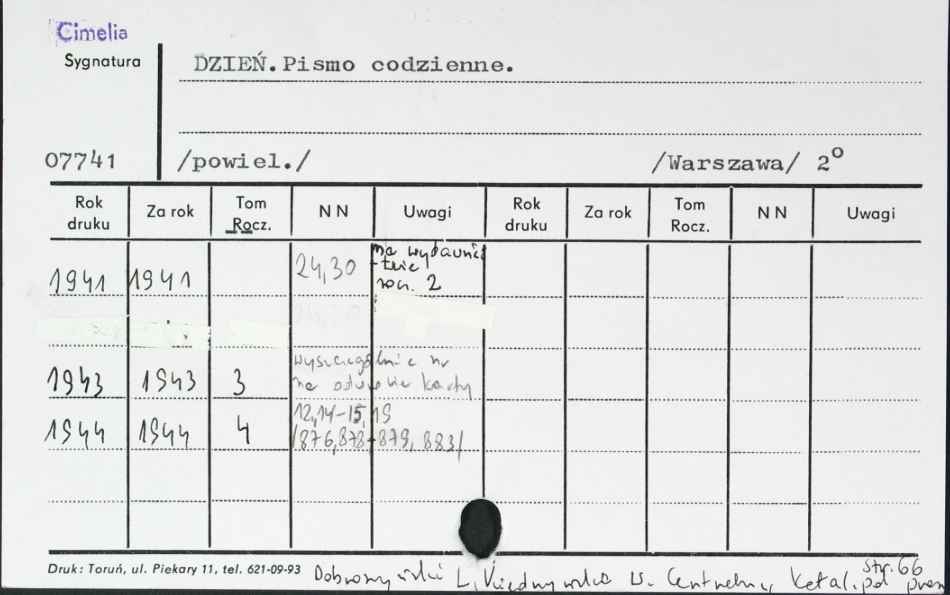 Cimelia
Sygnatura
DZIEŃ. Pismo codzienne.
07741 /powiel./ /Warszawa/ 2º
Rok druku Za rok Tom Rocz. NN Uwagi Rok druku Za rok Tom Rocz. NN Uwagi
1941 1941 24,30 na wydawnic-
-twie
rocz. 2
1943 1943 3 wyszczególnie nr
na odwrocie karty
1944 1944 4 12,14-15,19
/876,878-879, 883/
Druk: Toruń, ul. Piekary 11, tel. 621-09-93
Dobroszycki L., W. Centralny katal. pol. str. 66